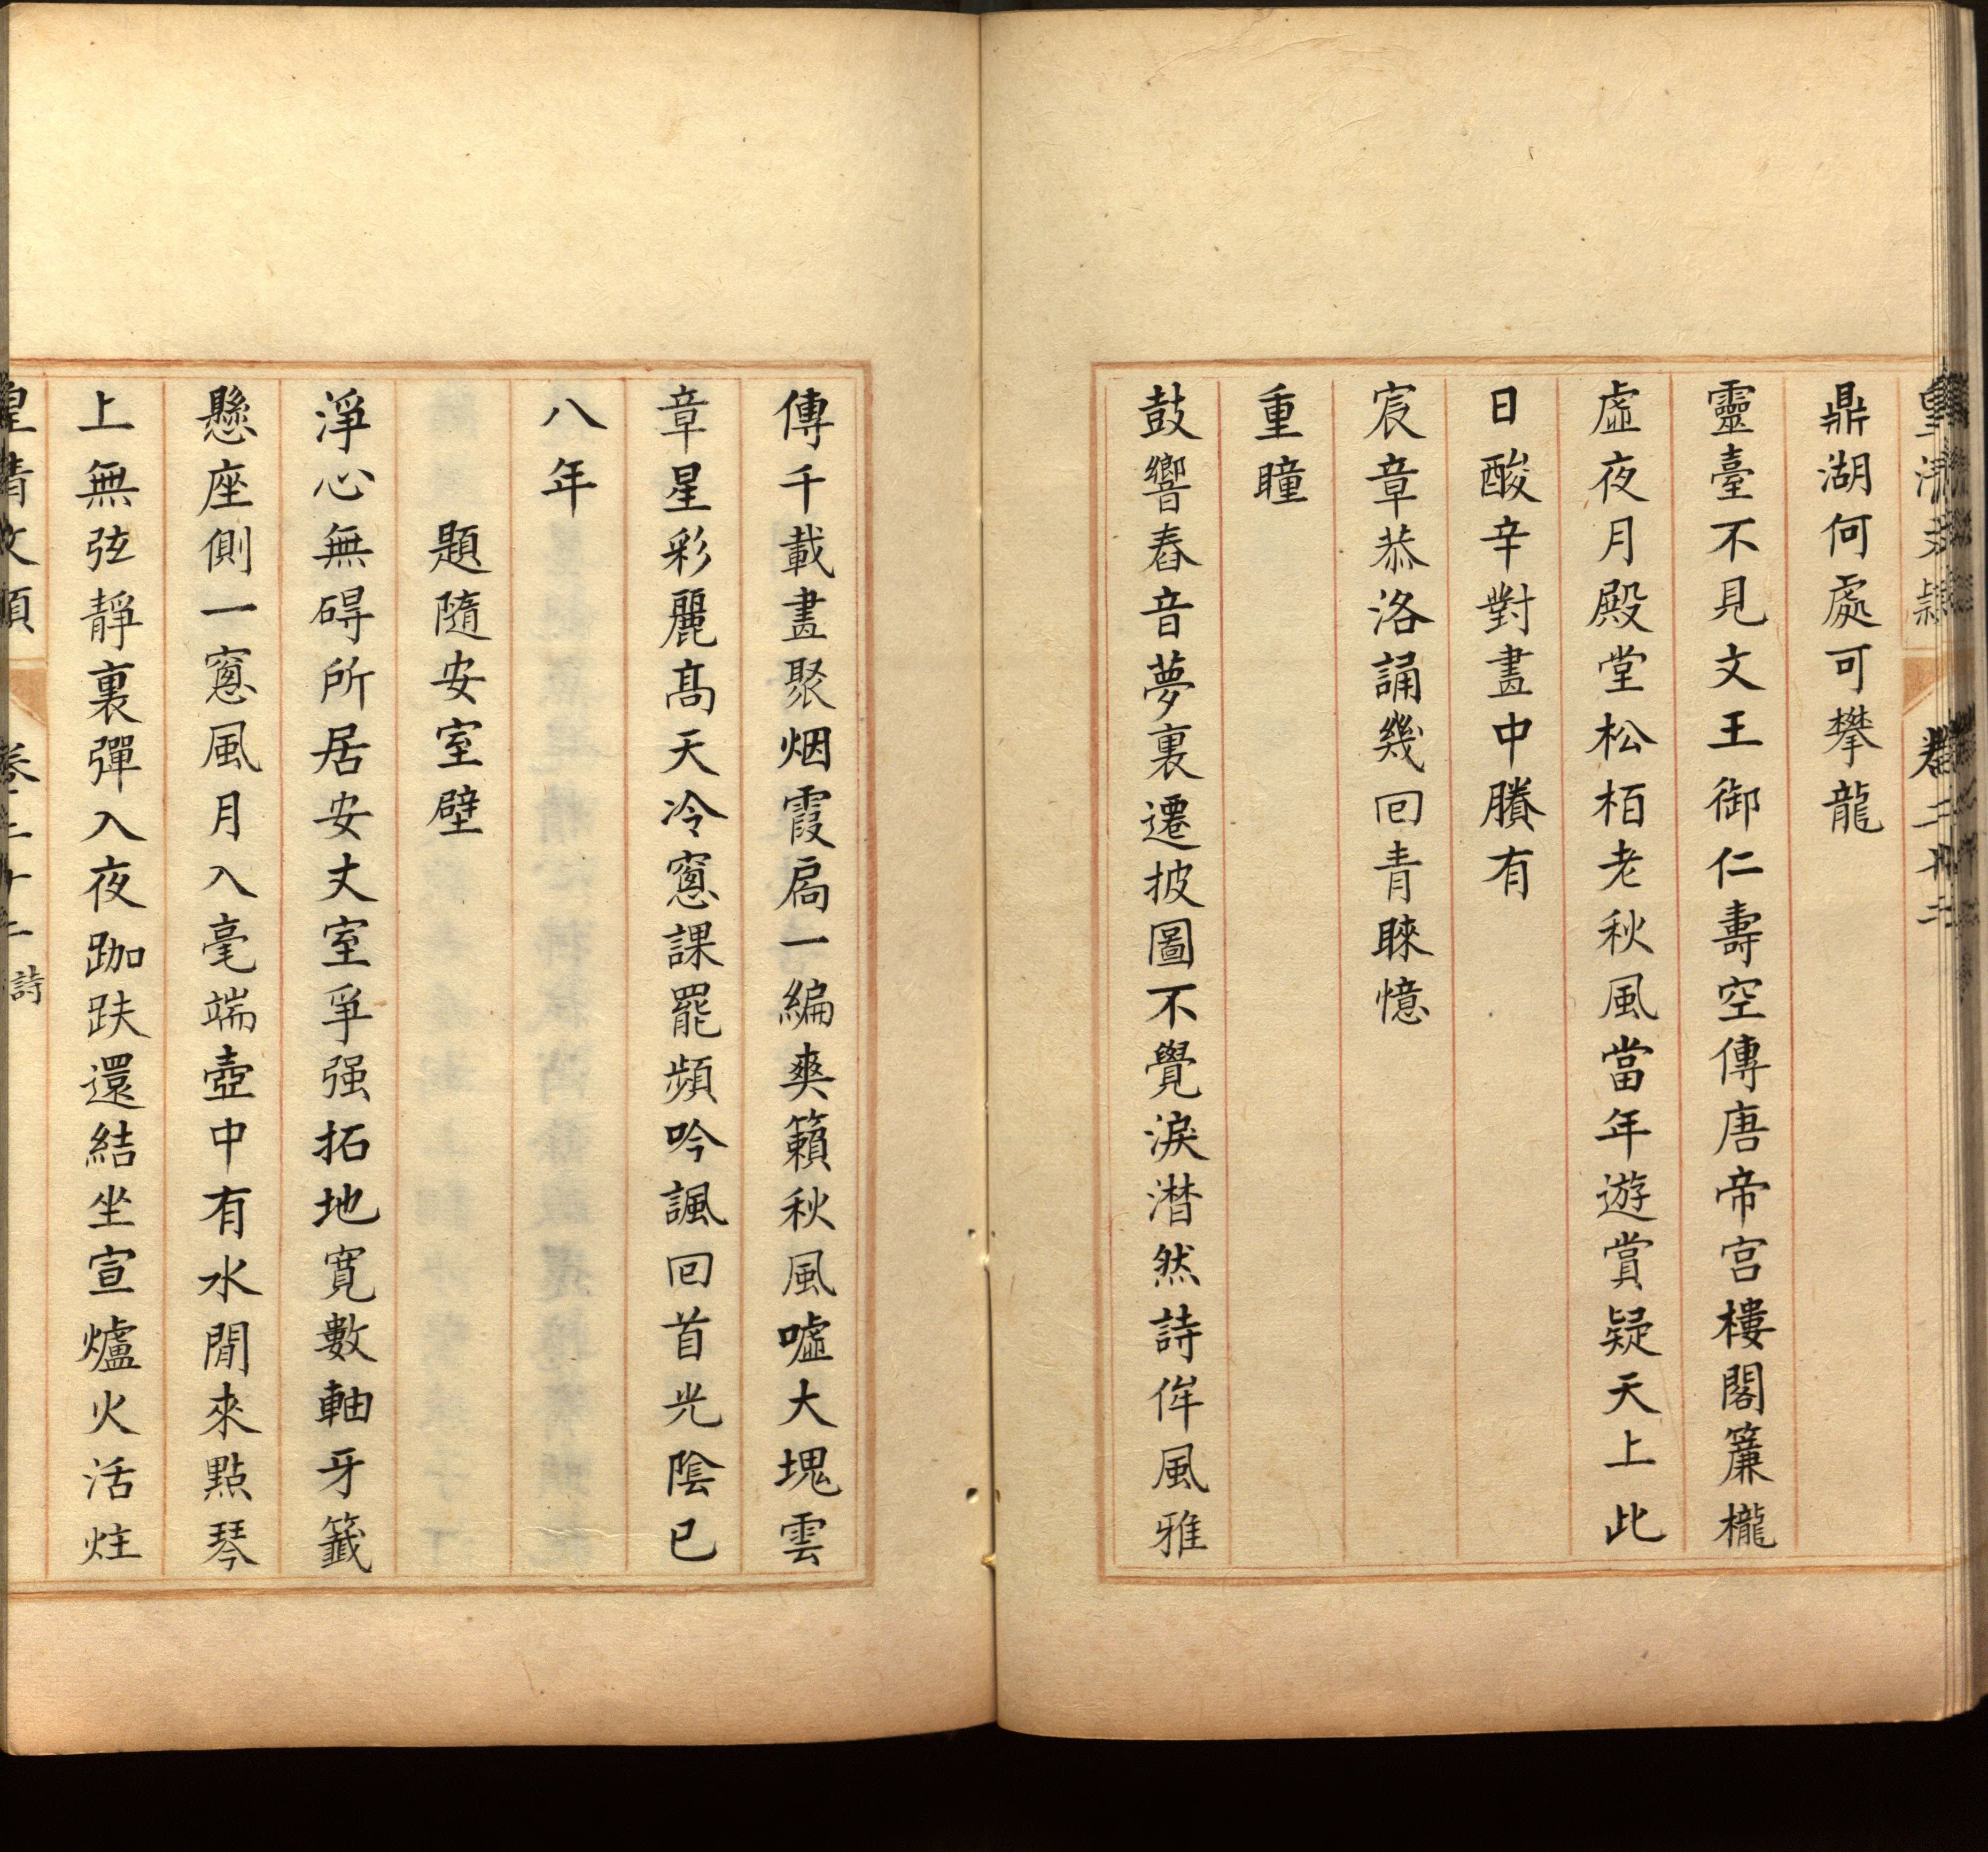 皇清文穎 卷二十二
鼎湖何處可攀龍
靈臺不見文王御仁壽空傳唐帝宮樓閣簾櫳
虛夜月殿堂松栢老秋風當年遊賞疑天上此
日酸辛對畫中賸有
宸章恭洛誦幾回青睞憶
重瞳
鼓響舂音夢裏遷披圖不覺淚潸然詩侔風雅
傳千載畫聚烟霞扃一編爽籟秋風噓大塊雲
章星彩麗髙天冷窻課罷頻吟諷回首光陰已
八年
題隨安室壁
淨心無碍所居安丈室爭强拓地寛數軸牙籤
懸座側一窻風月入毫端壺中有水閒來點琴
上無弦靜裏彈入夜跏趺還結坐宣爐火活炷
皇清文穎 卷二十二 詩